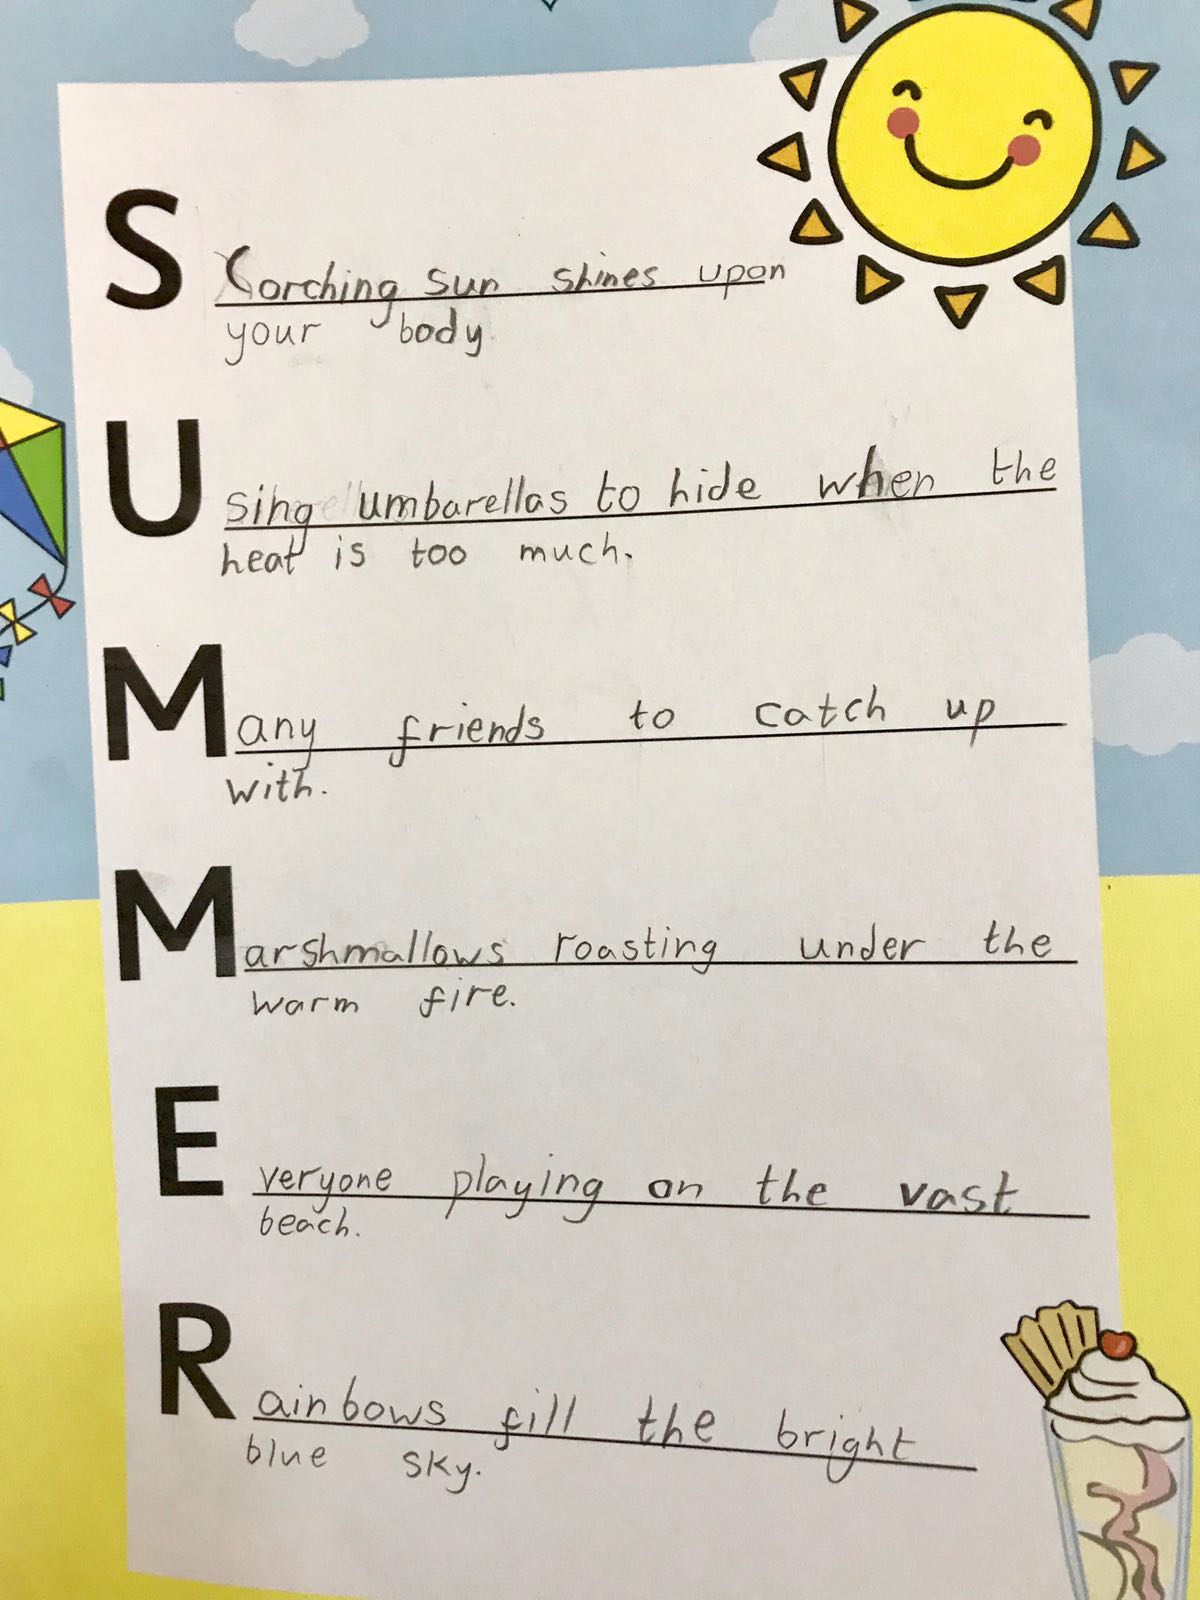 Scorching sun shines upon
your body.
Using umbarellas to hide when the
heat is too much.
Many friends to catch up
with.
Marshmallows roasting under the
warm fire.
Everyone playing on the vast
beach.
Rainbows fill the bright
blue sky.